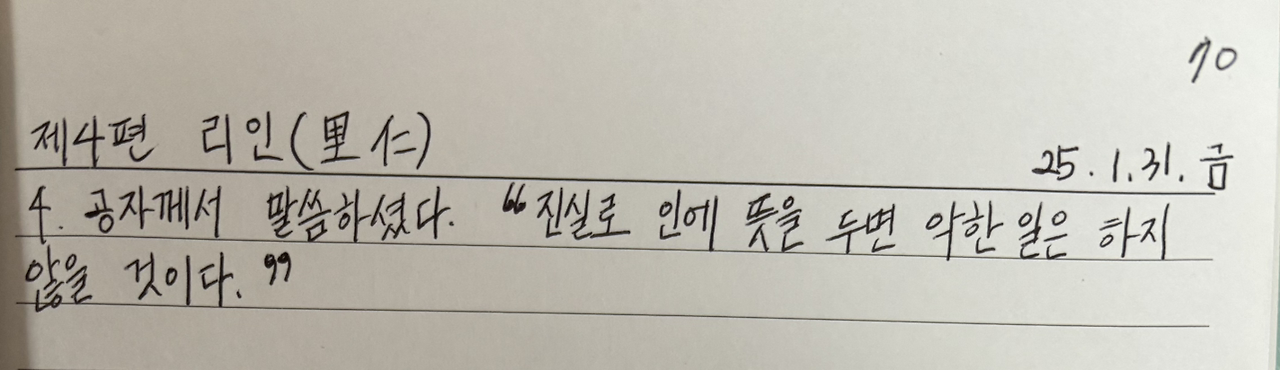 70
제4편 리인(里仁)
25.1.31.금
4. 공자께서 말씀하셨다. “진실로 인에 뜻을 두면 악한 일은 하지
않을 것이다.”